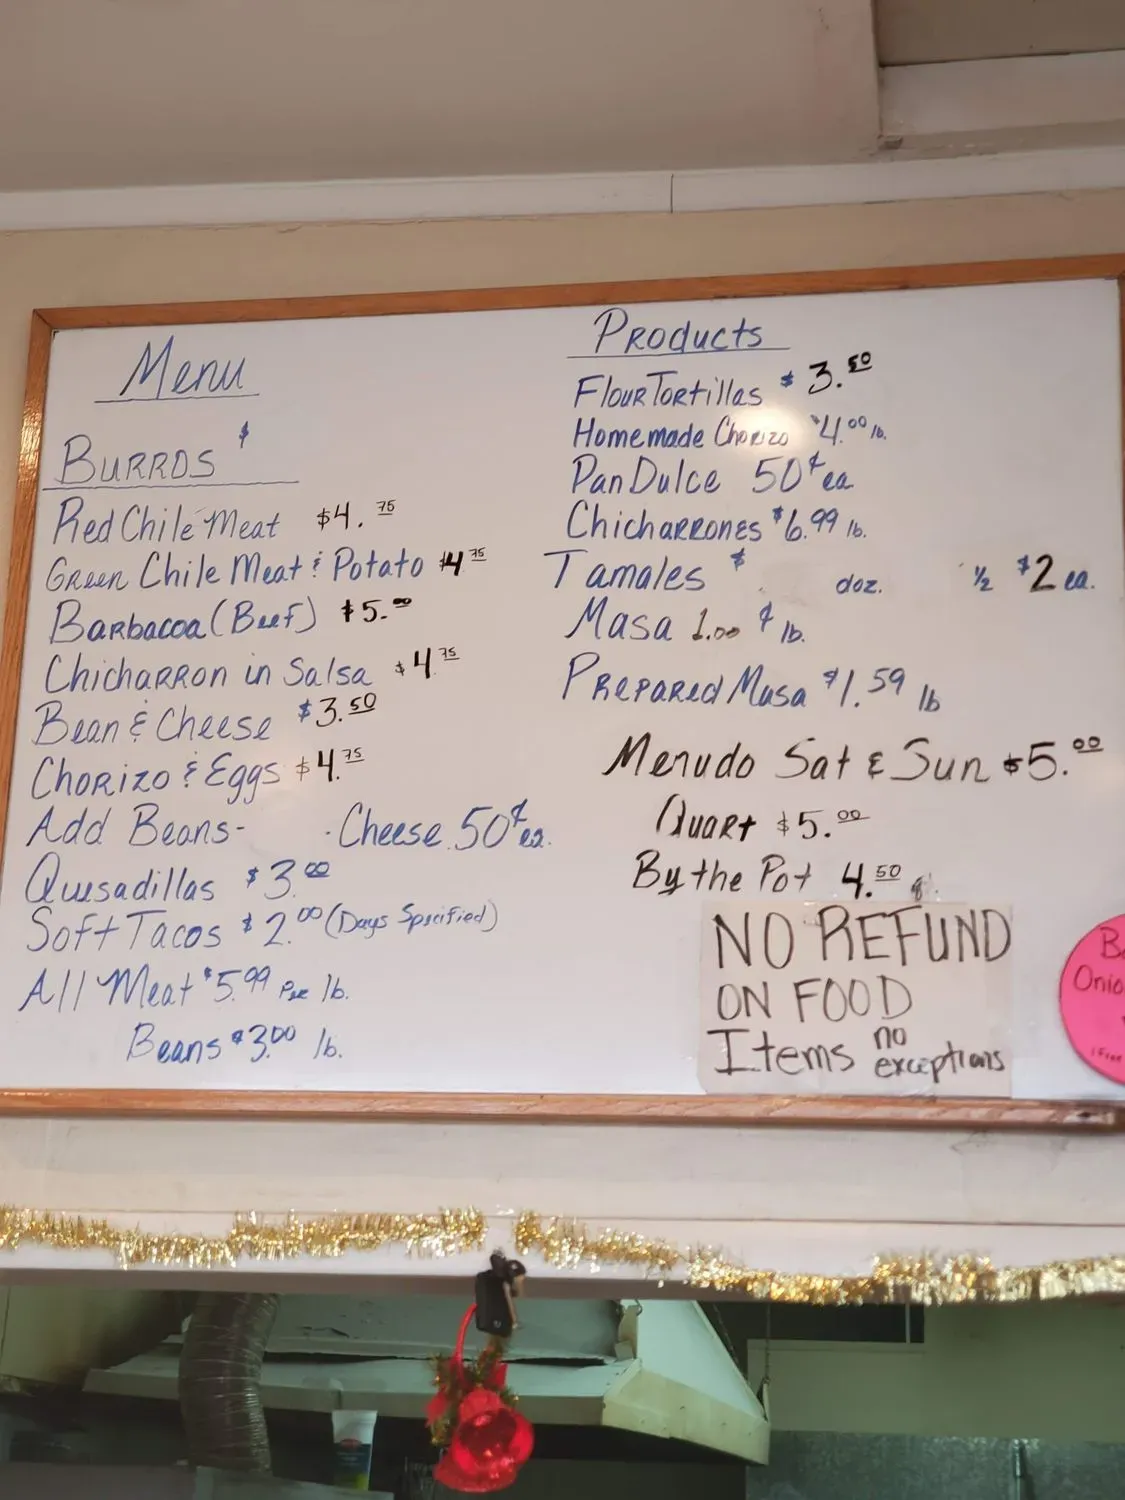 Menu
BURROS $
Red Chile Meat $4.75
Green Chile Meat & Potato $4.75
Barbacoa (Beef) $5.00
Chicharron in Salsa $4.75
Bean & Cheese $3.50
Chorizo & Eggs $4.75
Add Beans- Cheese 50¢ ea.
Quesadillas $3.00
Soft Tacos $2.00 (Days Specified)
All Meat $5.99 Per lb.
Beans $3.00 lb.
Products
Flour Tortillas $3.50
Homemade Chorizo $4.00 lb.
Pan Dulce 50¢ ea
Chicharrones $6.99 lb.
Tamales $ doz. ½ $2 ea.
Masa 1.00 ¢ lb.
Prepared Masa $1.59 lb
Menudo Sat & Sun $5.00
Quart $5.00
By the Pot 4.50
NO REFUND
ON FOOD
Items no
exceptions
Onio